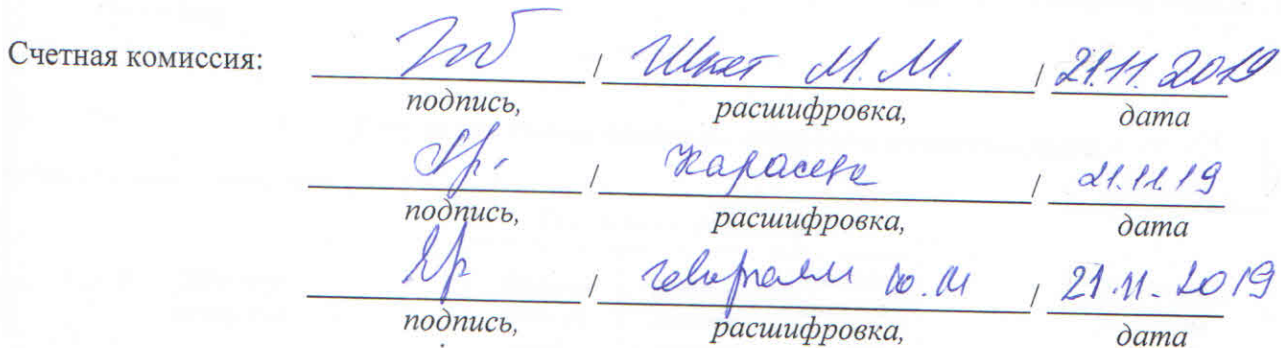 Счетная комиссия: / Шкет М. М. / 21.11.2019
подпись, расшифровка, дата
/ Карасек / 21.11.19
подпись, расшифровка, дата
/ Ю.М / 21.11.2019
подпись, расшифровка, дата